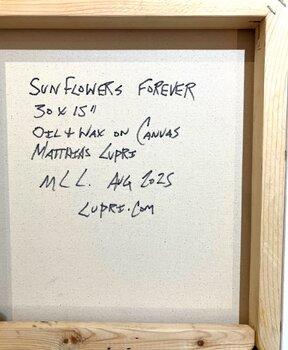 SUNFLOWERS FOREVER
30 x 15"
OIL + WAX ON CANVAS
MATTHIAS LUPRI
MLL. AUG 2025
LUPRI.COM